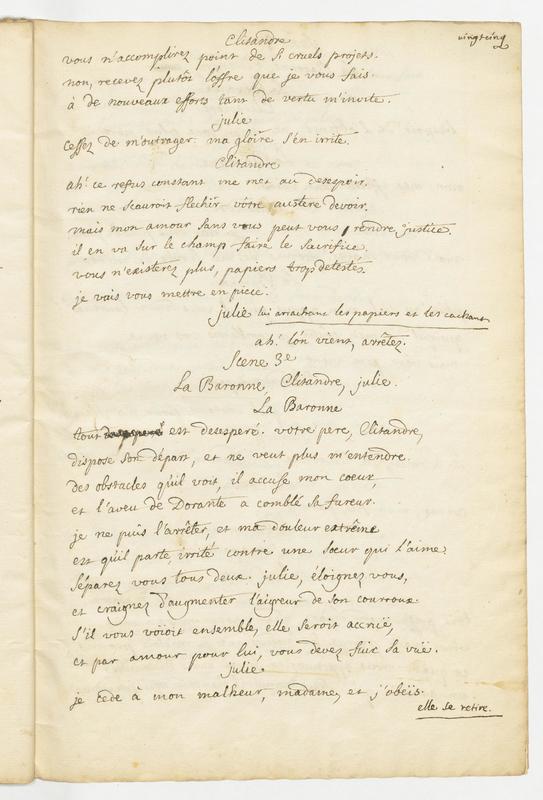 vingtcinq
Clitandre
vous n'accomplirez point de si cruels projets.
non, recevez plutôt l'offre que je vous fais.
à de nouveaux efforts tant de vertu m'invite.
julie
Cessez de m'outrager. ma gloire s'en irrite.
Clitandre
ah! ce refus constant me met au desespoir.
rien ne scauroit flechir vôtre austere devoir.
mais mon amour sans vous peut vous rendre justice.
il en va sur le champ faire le sacrifice.
vous n'existerez plus, papiers trop detestés.
je vais vous mettre en piece.
julie lui arrachant les papiers et les cachant
ah! l'on vient, arrêtez.
Scene 3e
La Baronne, Clitandre, julie.
La Baronne
tout est desesperé. votre pere, Clitandre,
dispose son départ, et ne veut plus m'entendre.
des obstacles qu'il voit, il accuse mon coeur,
et l'aveu de Dorante a comblé sa fureur.
je ne puis l'arrêter, et ma douleur extrême
est qu'il parte irrité contre une soeur qui l'aime.
Séparez vous tous deux. julie, éloignez vous,
et craignez d'augmenter l'aigreur de son courroux.
S'il vous voioit ensemble, elle seroit accruë,
et par amour pour lui, vous devez fuir sa vüe.
julie
je cede à mon malheur, madame, et j'obéis.
elle se retire.